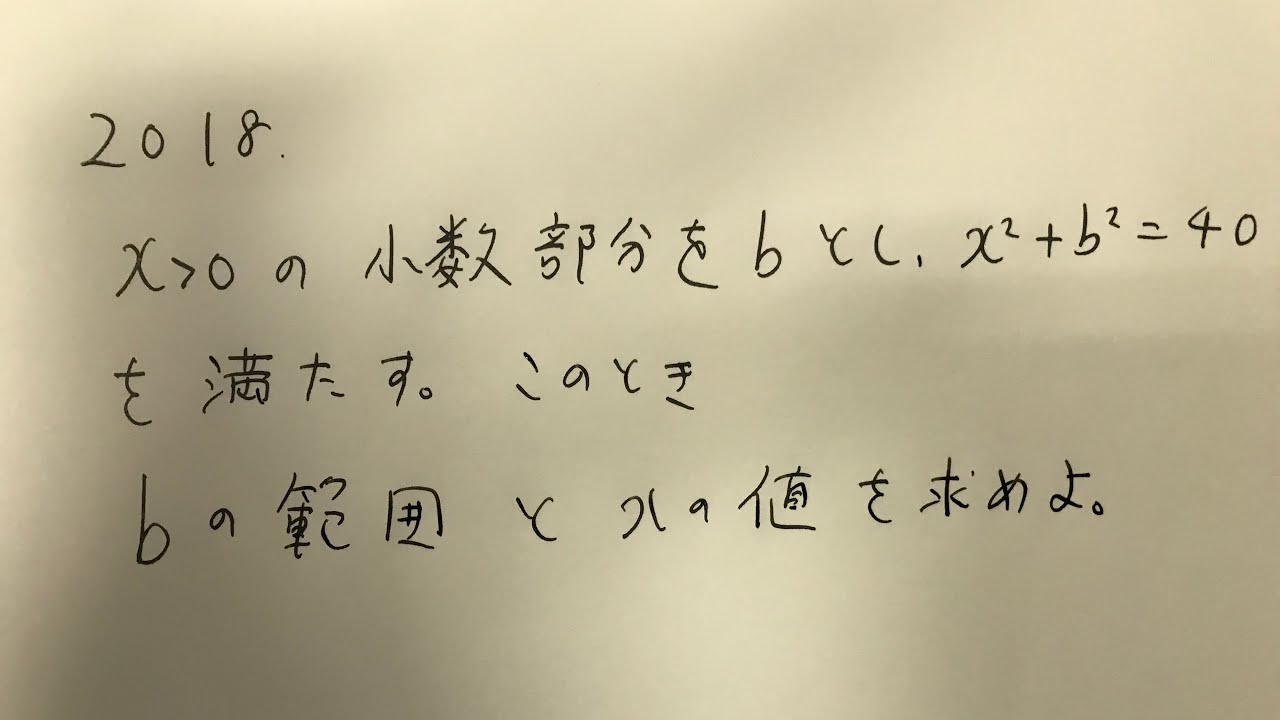 2018.
x>0の小数部分をbとし、x²+b²=40
を満たす。このとき
bの範囲とxの値を求めよ。